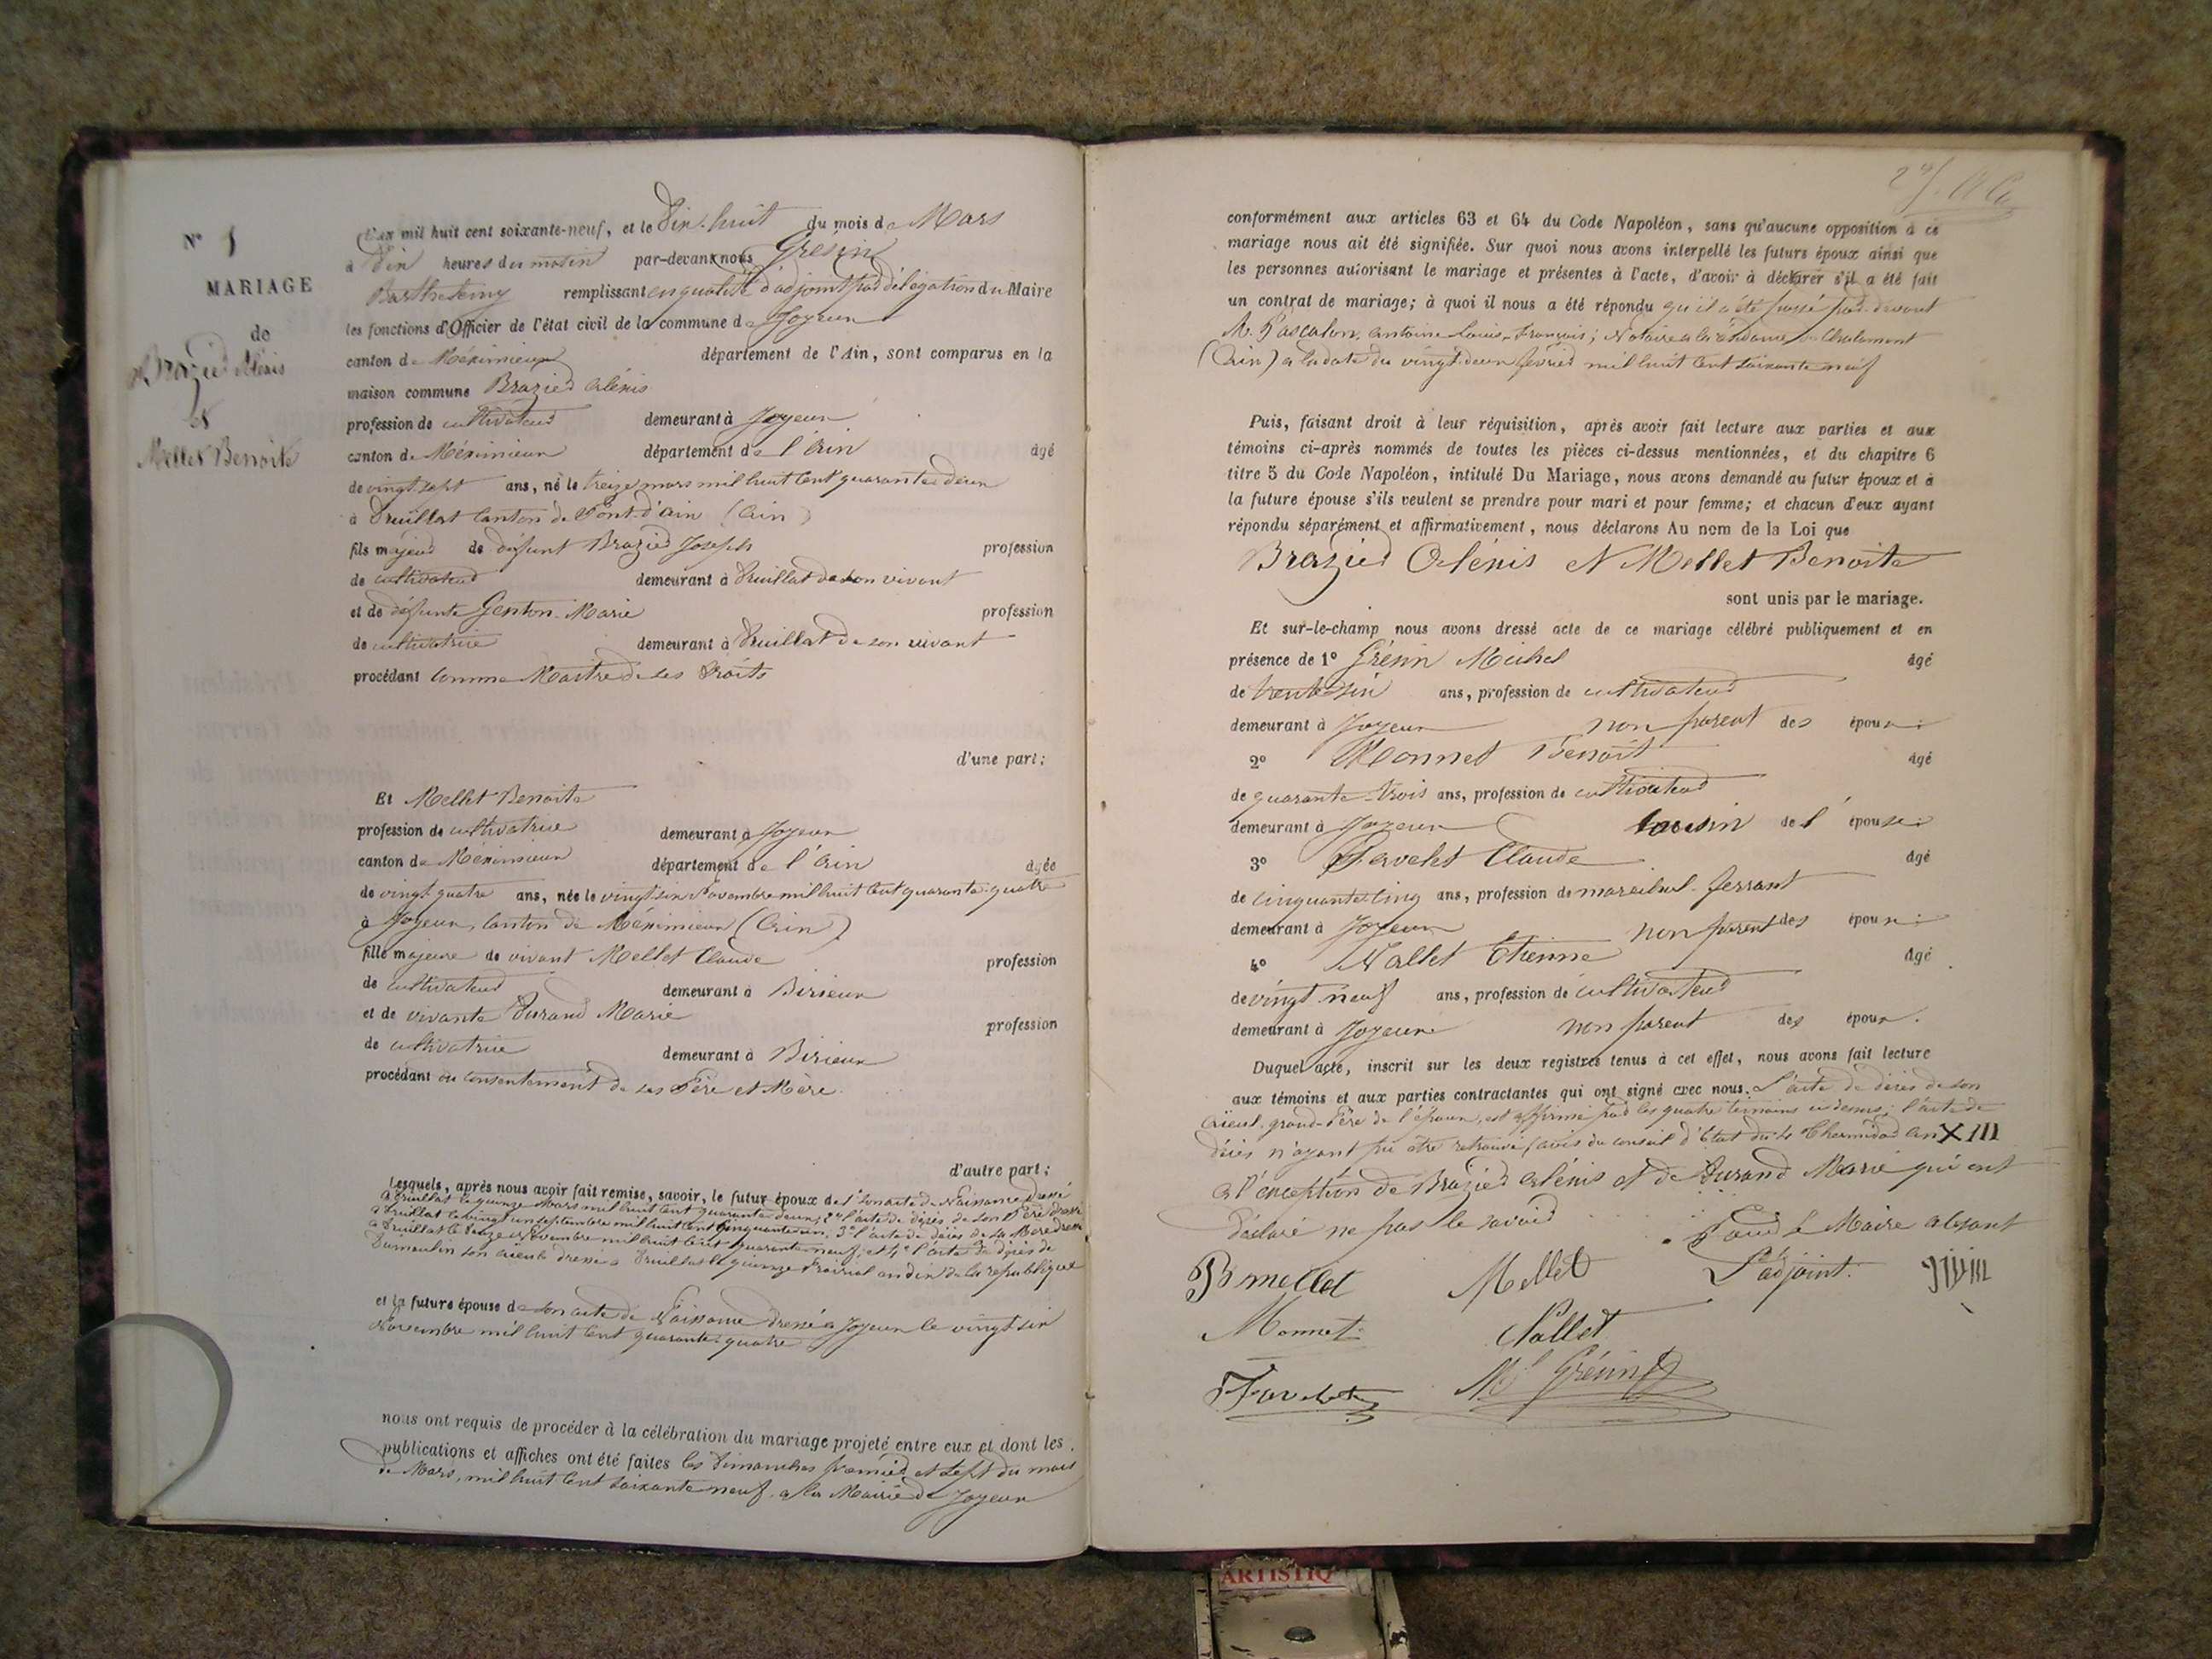 N° 1
MARIAGE
de
Brazier Alexis
et
Mellet Benoite
L'an mil huit cent soixante-neuf, et le Dix-huit du mois de Mars
à Dix heures du matin par-devant nous Grésin
Barthelemy remplissant en qualité d'adjoint par délégation du Maire
les fonctions d'Officier de l'état civil de la commune de Joyeux
canton de Méximieux département de l'Ain, sont comparus en la
maison commune Brazier Alexis
profession de cultivateur demeurant à Joyeux
canton de Méximieux département de l'Ain âgé
de vingt sept ans, né le treize mars mil huit cent quarante deux
à Druillat Canton de Pont-d'ain (Ain)
fils majeur de défunt Brazier Joseph profession
de cultivateur demeurant à Druillat de son vivant
et de défunte Genton Marie profession
de cultivatrice demeurant à Druillat de son vivant
procédant comme Maitre de ses Droits
d'une part;
Et Mellet Benoite
profession de cultivatrice demeurant à Joyeux
canton de Méximieux département de l'Ain âgée
de vingt quatre ans, née le vingt six Novembre mil huit cent quarante-quatre
à Joyeux, Canton de Méximieux (Ain)
fille majeure de vivant Mellet Claude profession
de cultivateur demeurant à Birieux
et de vivante Durand Marie profession
de cultivatrice demeurant à Birieux
procédant du consentement de ses Père et Mère
d'autre part;
Lesquels, après nous avoir fait remise, savoir, le futur époux de 1° son acte de Naissance dressé
à Druillat le quinze Mars mil huit cent quarante deux; 2° l'acte de décès de son Père dressé
à Druillat le vingt un septembre mil huit cent cinquante six, 3° l'acte de décès de sa Mère dressé
à Druillat le onze Novembre mil huit cent quarante neuf; et 4° l'acte de décès de
Dumoulin son aieule dressé à Druillat le quinze Prairial an dix de la république
et la future épouse de son acte de Naissance dressé à Joyeux le vingt six
Novembre mil huit cent quarante-quatre
nous ont requis de procéder à la célébration du mariage projeté entre eux et dont les
publications et affiches ont été faites les Dimanches premier et sept du mois
de Mars, mil huit cent soixante neuf à la Mairie de Joyeux
conformément aux articles 63 et 64 du Code Napoléon, sans qu'aucune opposition à ce
mariage nous ait été signifiée. Sur quoi nous avons interpellé les futurs époux ainsi que
les personnes autorisant le mariage et présentes à l'acte, d'avoir à déclarer s'il a été fait
un contrat de mariage; à quoi il nous a été répondu qu'il a été passé par-devant
M. Pascalon, Antoine Louis-François; Notaire à la résidence de Chalamont
(Ain) à la date du vingt-deux février mil huit cent soixante neuf
Puis, faisant droit à leur réquisition, après avoir fait lecture aux parties et aux
témoins ci-après nommés de toutes les pièces ci-dessus mentionnées, et du chapitre 6
titre 5 du Code Napoléon, intitulé Du Mariage, nous avons demandé au futur époux et à
la future épouse s'ils veulent se prendre pour mari et pour femme; et chacun d'eux ayant
répondu séparément et affirmativement, nous déclarons Au nom de la Loi que
Brazier Alexis et Mellet Benoite
sont unis par le mariage.
Et sur-le-champ nous avons dressé acte de ce mariage célébré publiquement et en
présence de 1° Grésin Michel âgé
de trente six ans, profession de cultivateur
demeurant à Joyeux non parent des époux;
2° Monnet Benoit âgé
de quarante-trois ans, profession de cultivateur
demeurant à Joyeux Cousin de l'épouse;
3° Favelet Claude âgé
de cinquante-cinq ans, profession de maréchal-ferrant
demeurant à Joyeux non parent des époux;
4° Nallet Etienne âgé
de vingt neuf ans, profession de cultivateur
demeurant à Joyeux non parent des époux.
Duquel acte, inscrit sur les deux registres tenus à cet effet, nous avons fait lecture
aux témoins et aux parties contractantes qui ont signé avec nous. L'acte de décès de son
aieul, grand-Père de l'époux, est affirmé par les quatre témoins ci-dessus; l'acte de
décès n'ayant pu être retrouvé, (avis du conseil d'Etat du 4 Thermidor an XIII
à l'exception de Brazier Alexis et de Durand Marie qui ont
déclaré ne pas le savoir Pour le Maire absent
B mellet Mellet L'adjoint.
Monnet Nallet
Favelet Ml Grésin
ARTISTIQ